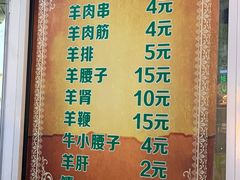 羊肉串 4元
羊肉筋 4元
羊排 5元
羊腰子 15元
羊肾 10元
羊鞭 15元
牛小腰子 4元
羊肝 2元